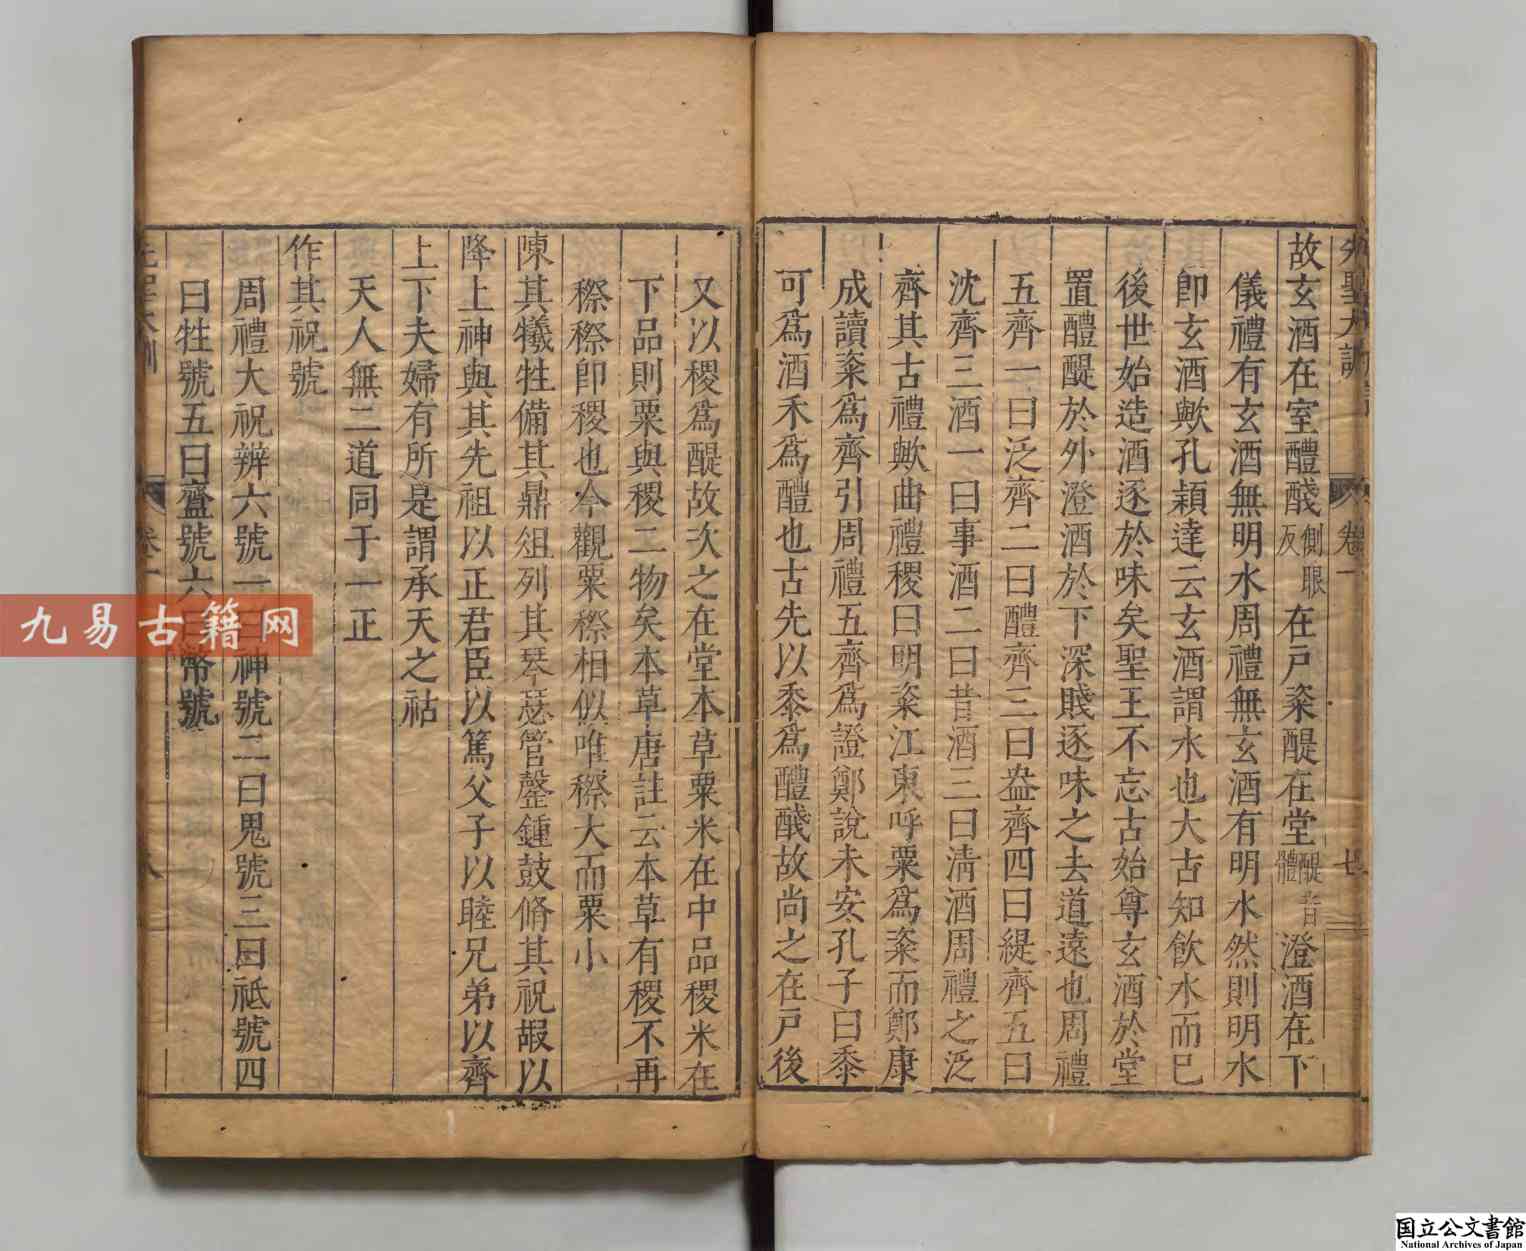 故玄酒在室醴醆側眼反在戸粢醍在堂醍音體澄酒在下
儀禮有玄酒無明水周禮無玄酒有明水然則明水
卽玄酒歟孔穎達云玄酒謂水也大古知飲水而已
後世始造酒逐於味矣聖王不忘古始尊玄酒於堂
置醴醍於外澄酒於下深賤逐味之去道遠也周禮
五齊一曰泛齊二曰醴齊三曰盎齊四曰緹齊五曰
沈齊三酒一曰事酒二曰昔酒三曰淸酒周禮之泛
齊其古禮歟曲禮稷曰明粢江東呼粟爲粢而鄭康
成讀粢爲齊引周禮五齊爲證鄭說未安孔子曰黍
可爲酒禾爲醴也古先以黍爲醴醆故尚之在戸後
又以稷爲醍故次之在堂本草粟米在中品稷米在
下品則粟與稷二物矣本草唐註云本草有稷不再
穄穄卽稷也今觀粟穄相似唯穄大而粟小
陳其犧牲備其鼎俎列其琴瑟管罄鍾鼓脩其祝嘏以
降上神與其先祖以正君臣以篤父子以睦兄弟以齊
上下夫婦有所是謂承天之祜
天人無二道同于一正
作其祝號
周禮大祝辨六號一曰神號二曰鬼號三曰祗號四
曰牲號五曰齍號六曰幣號
卷一
七
九易古籍网
国立公文書館
National Archives of Japan